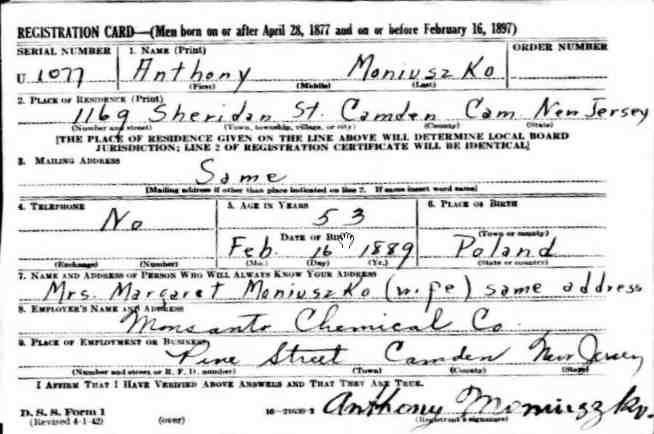 REGISTRATION CARD—(Men born on or after April 28, 1877 and on or before February 16, 1897)
SERIAL NUMBER 1. NAME (Print) ORDER NUMBER
U 1077 Anthony Moniuszko
(First) (Middle) (Last)
2. PLACE OF RESIDENCE (Print)
1169 Sheridan St. Camden Cam New Jersey
(Number and street) (Town, township, village, or city) (County) (State)
[THE PLACE OF RESIDENCE GIVEN ON THE LINE ABOVE WILL DETERMINE LOCAL BOARD
JURISDICTION; LINE 2 OF REGISTRATION CERTIFICATE WILL BE IDENTICAL]
3. MAILING ADDRESS
Same
[Mailing address if other than place indicated on line 2. If same insert word same]
4. TELEPHONE 5. AGE IN YEARS 6. PLACE OF BIRTH
No 53
DATE OF BIRTH (Town or county)
Feb. 16 1889 Poland
(Exchange) (Number) (Mo.) (Day) (Yr.) (State or country)
7. NAME AND ADDRESS OF PERSON WHO WILL ALWAYS KNOW YOUR ADDRESS
Mrs. Margaret Moniuszko (wife) same address
8. EMPLOYER'S NAME AND ADDRESS
Monsanto Chemical Co.
9. PLACE OF EMPLOYMENT OR BUSINESS
Pine Street Camden New Jersey
(Number and street or R. F. D. number) (Town) (County) (State)
I AFFIRM THAT I HAVE VERIFIED ABOVE ANSWERS AND THAT THEY ARE TRUE.
D. S. S. Form 1 Anthony Moniuszko.
(Revised 4-1-42) (over) 16—21630-2 (Registrant's signature)